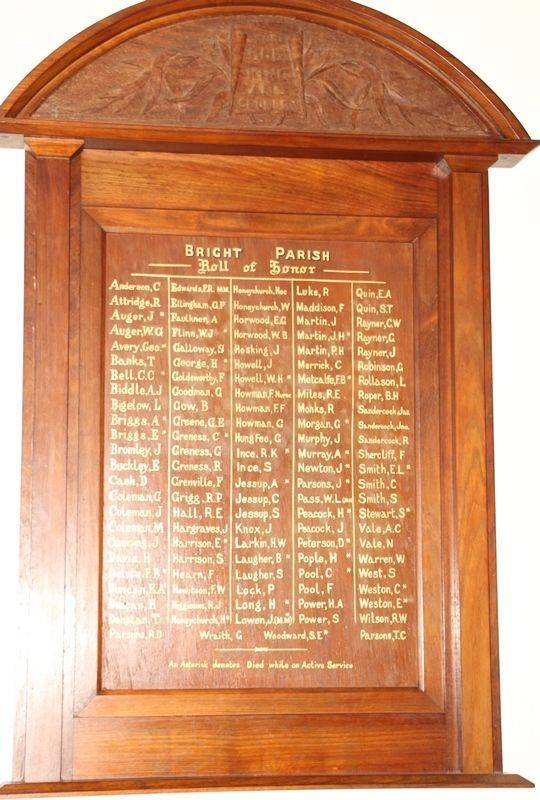 BRIGHT PARISH
Roll of Honor
Anderson, C
Attridge, R
Auger, J *
Auger, W.G
Avery, Geo. *
Banks, T
Bell, C.C *
Biddle, A.J
Bigelow, L
Briggs, A *
Briggs, E *
Bromley, J
Buckley, E
Cash, D
Coleman, G
Coleman, J
Coleman, M
Davis, H
Duncan, E.A *
Duncan, H
Dunstan, T
Parsons, R.D
Edwards, P.R. M.M.
Ellingham, G.F
Faulkner, A
Flinn, W.J *
Galloway, S
George, H *
Goldsworthy, F
Goodman, G
Gow, B
Greene, G.E
Greness, C *
Greness, G
Greness, R
Grenville, F
Grigg, R.P
Hall, R.E
Hargraves, J
Harrison, E *
Harrison, S
Hearn, F
Hewitson, F.W
Higginson, R.J
Honeychurch, H *
Wraith, G
Honeychurch, Hec
Honeychurch, W
Horwood, E.G
Horwood, W.B
Hosking, J
Howell, J
Howell, W.H *
Howman, F. Nurse
Howman, F.F
Howman, G
Hung Foo, G
Ince, R.K *
Ince, S
Jessup, A *
Jessup, C
Jessup, S
Knox, J
Larkin, H.W
Laugher, B *
Laugher, S
Lock, P
Long, H *
Lowen, J. (M.M)
Woodward, S.E *
Luke, R
Maddison, F
Martin, J
Martin, J.H *
Martin, P.H
Merrick, C
Metcalfe, F.B *
Miles, R.E
Monks, R
Morgan, G *
Murphy, J
Murray, A *
Newton, J *
Parsons, J *
Pass, W.L
Peacock, H *
Peacock, J
Peterson, D *
Pople, H *
Pool, C *
Pool, F
Power, H.A
Power, S
Quin, E.A
Quin, S.T
Rayner, C.W
Rayner, G
Rayner, J
Robinson, G
Rollason, L
Roper, B.H
Sandercock, Jas
Sandercock, Jno.
Sandercock, R
Shercliff, F
Smith, E.L *
Smith, C
Smith, S
Stewart, S *
Vale, A.C
Vale, N
Warren, W
West, S
Weston, C *
Weston, E *
Wilson, R.W
Parsons, T.C
An Asterisk denotes Died while on Active Service